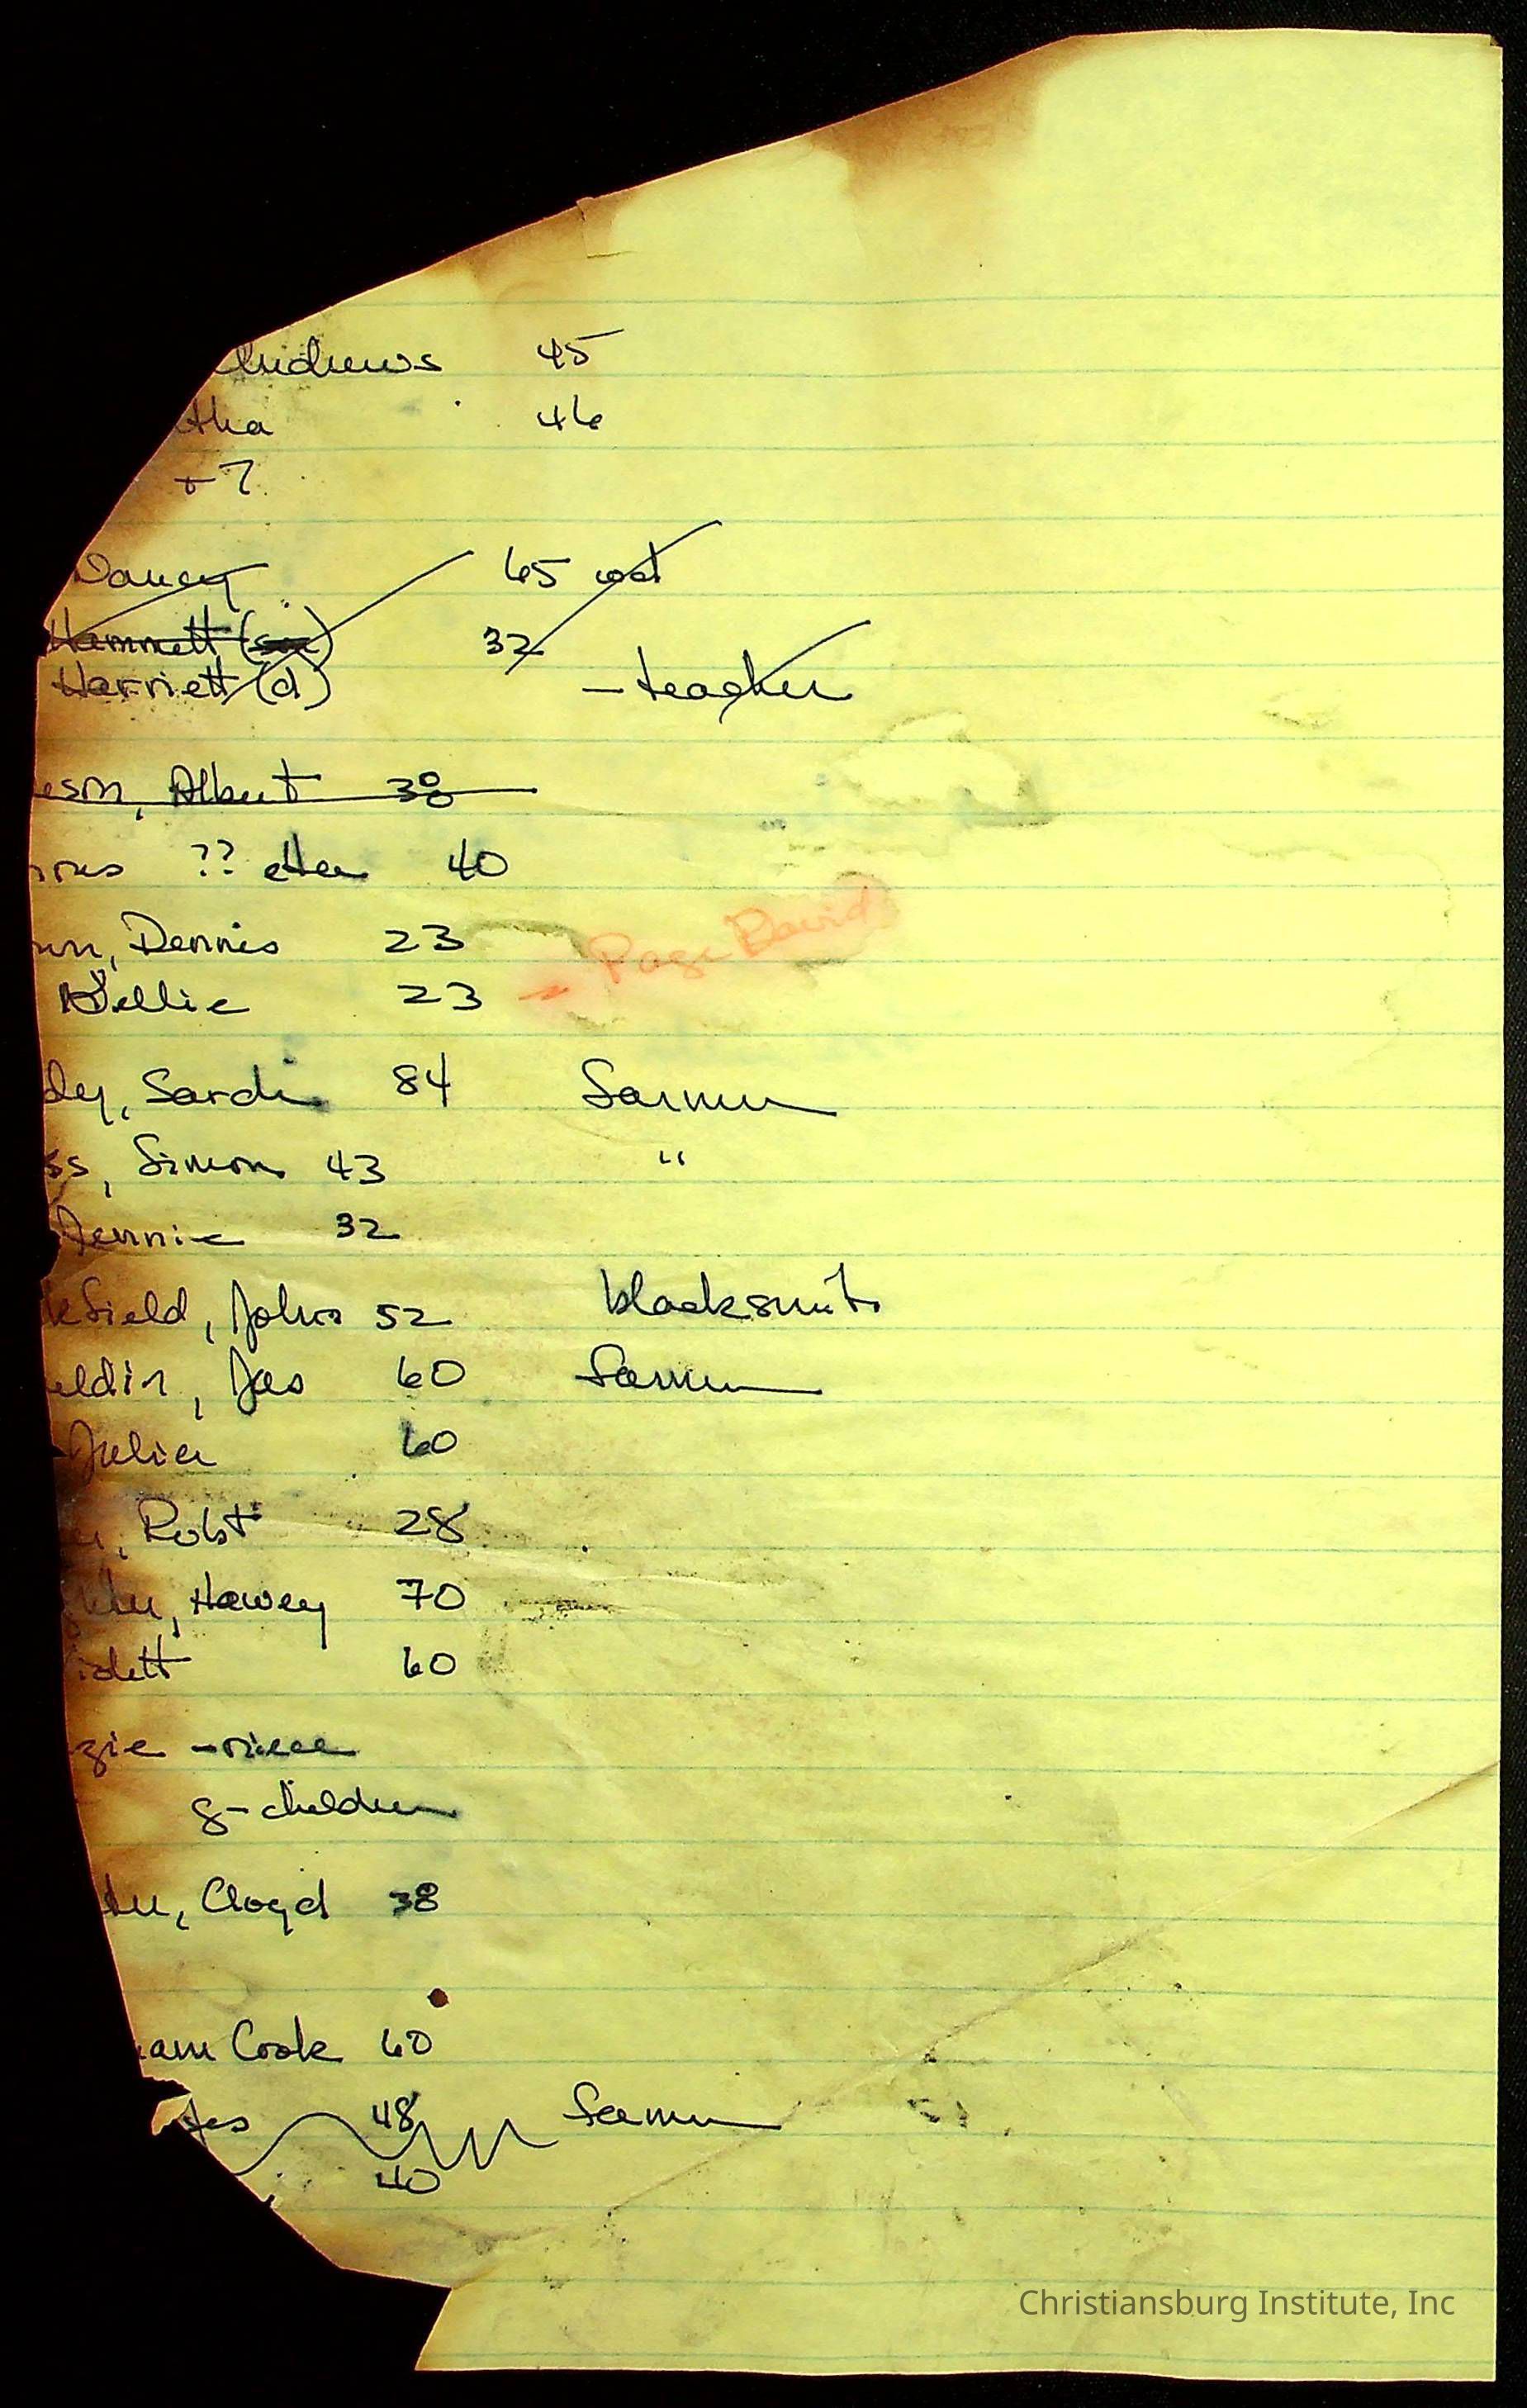 Andrews 45
tha 46
+7
Nancy 65 wd
Hammett (sis) 32
Harriett (d) - teacher
eson, Albert 38
?? etta 40
wn, Dennis 23
Page David
Nellie 23
dy, Sardi 84 farmer
ss, Simon 43 "
Jennie 32
kfield, John 52 blacksmith
eldin, Jas 60 farmer
Julia 60
, Robt 28
, Harvey 70
idett 60
zie - niece
g-children
, Cloyd 38
iam Cook 60
Jas 48 farmer
40
Christiansburg Institute, Inc